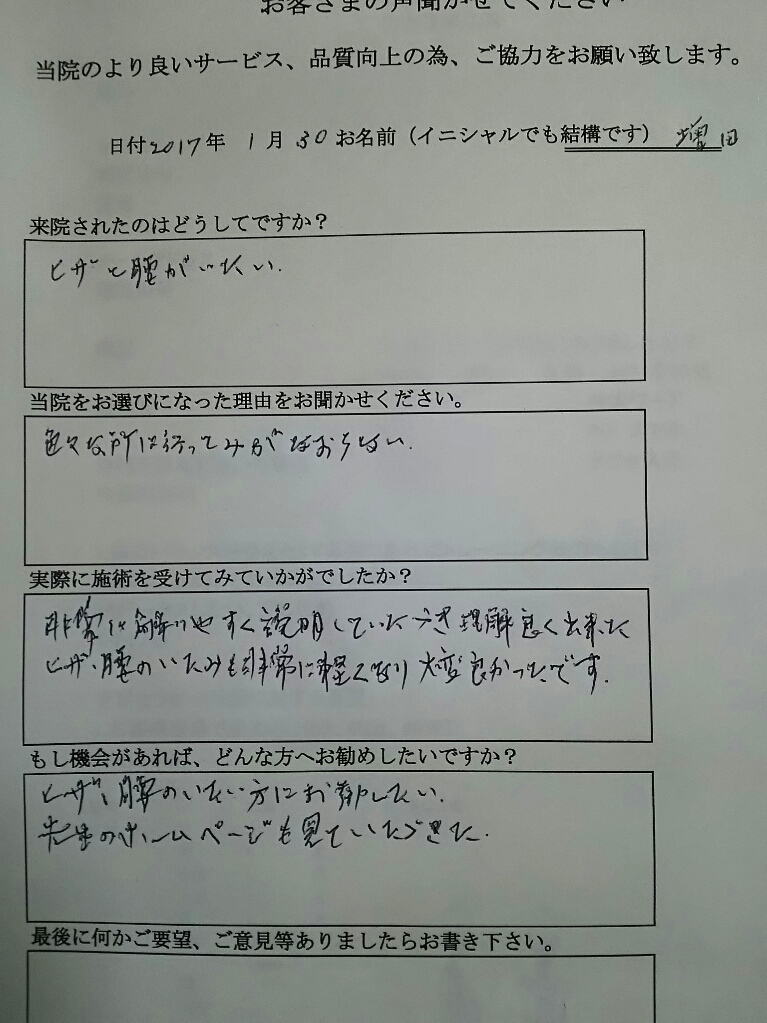 お客さまの声聞かせてください
当院のより良いサービス、品質向上の為、ご協力をお願い致します。
日付2017年 1月30お名前（イニシャルでも結構です） 増田
来院されたのはどうしてですか？
ヒザと腰がいたい.
当院をお選びになった理由をお聞かせください。
色々な所は行ってみがなおらない.
実際に施術を受けてみていかがでしたか？
非常に解りやすく説明していただき理解良く出来た
ヒザ、腰のいたみも非常に軽くなり大変良かったです.
もし機会があれば、どんな方へお勧めしたいですか？
ヒザ、腰のいたい方にお勧したい.
先生のホームページも見ていただきた.
最後に何かご要望、ご意見等ありましたらお書き下さい。